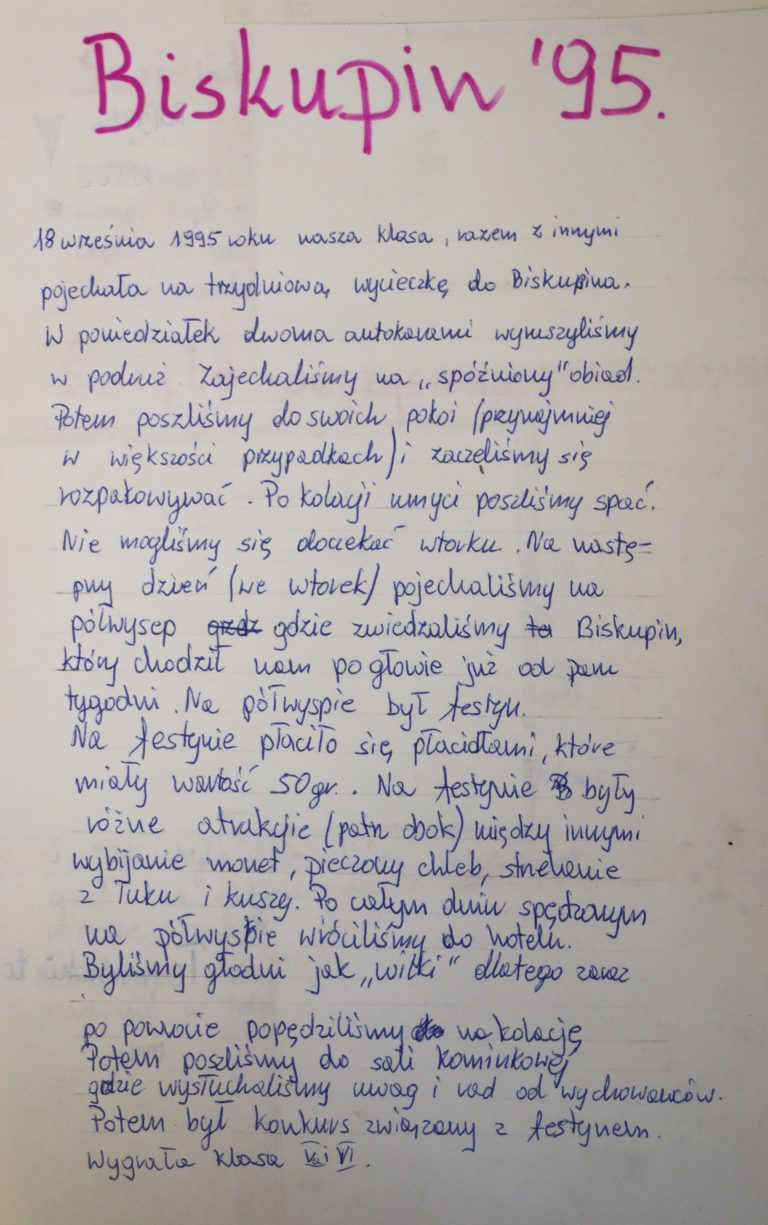 Biskupin '95.
18 września 1995 roku nasza klasa, razem z innymi
pojechała na trzydniową wycieczkę do Biskupina.
W poniedziałek dwoma autokarami wyruszyliśmy
w podróż. Zajechaliśmy na „spóźniony" obiad.
Potem poszliśmy do swoich pokoi (przynajmniej
w większości przypadkach) i zaczęliśmy się
rozpakowywać. Po kolacji umyci poszliśmy spać.
Nie mogliśmy się doczekać wtorku. Na nastę=
pny dzień (we wtorek) pojechaliśmy na
półwysep gdzie zwiedzaliśmy Biskupin,
który chodził nam po głowie już od paru
tygodni. Na półwyspie był festyn.
Na festynie płaciło się płacidłami, które
miały wartość 50gr. Na festynie były
różne atrakcjie (patrz obok) między innymi
wybijanie monet, pieczony chleb, strzelanie
z łuku i kuszy. Po całym dniu spędzonym
na półwyspie wróciliśmy do hotelu.
Byliśmy głodni jak „wilki" dlatego zaraz
po powrocie popędziliśmy na kolację
Potem poszliśmy do sali kominkowej
gdzie wysłuchaliśmy uwag i rad od wychowawców.
Potem był konkurs związany z festynem.
Wygrała klasa Va i VI.